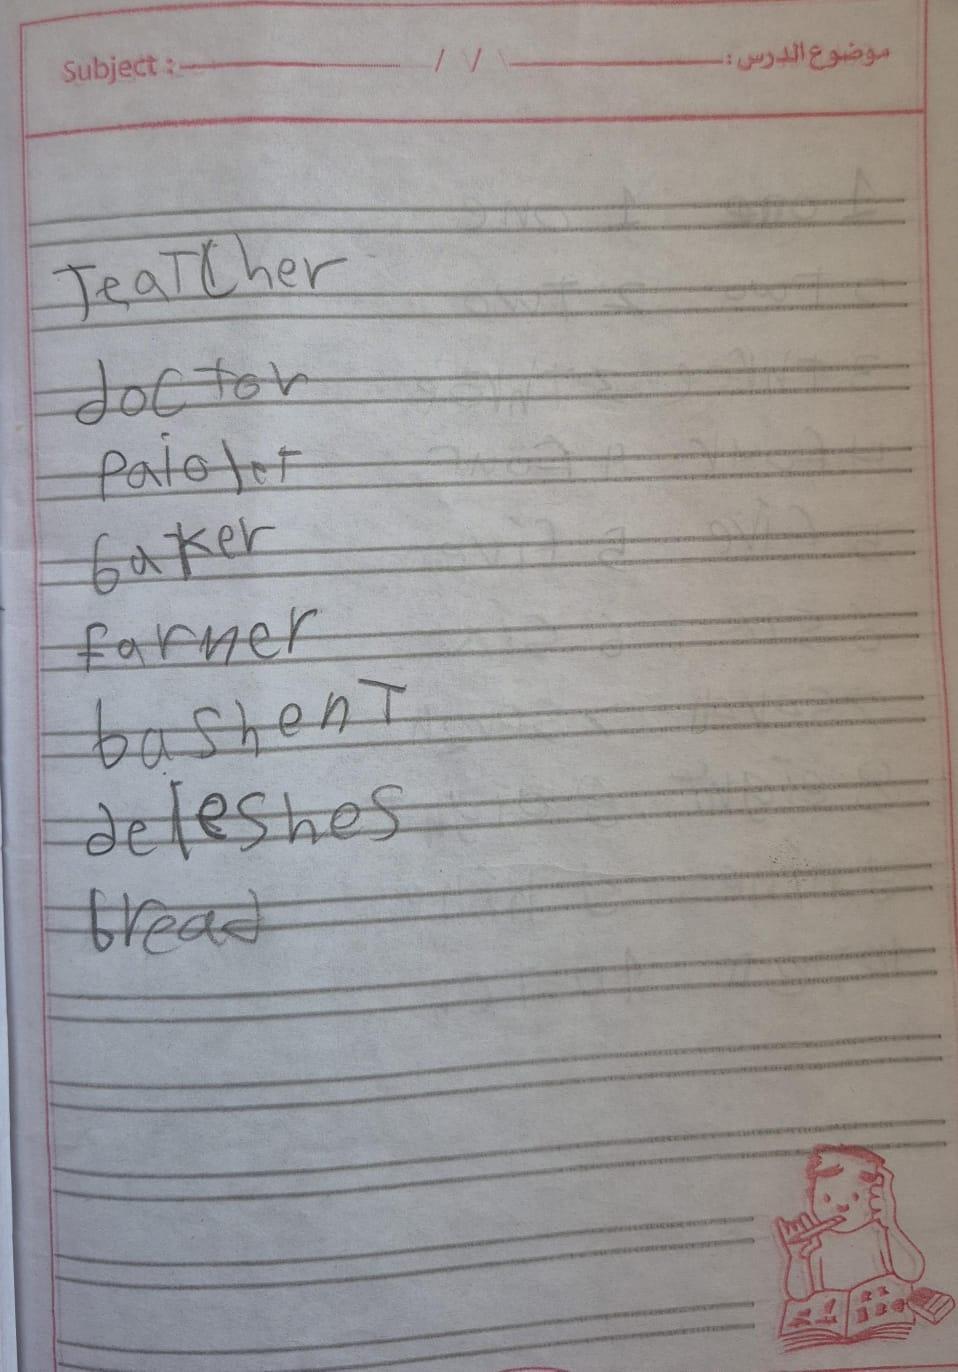 Subject : / / موضوع الدرس:
TeaTCher
doctor
paiolet
baker
farner
bashenT
deleshes
bread